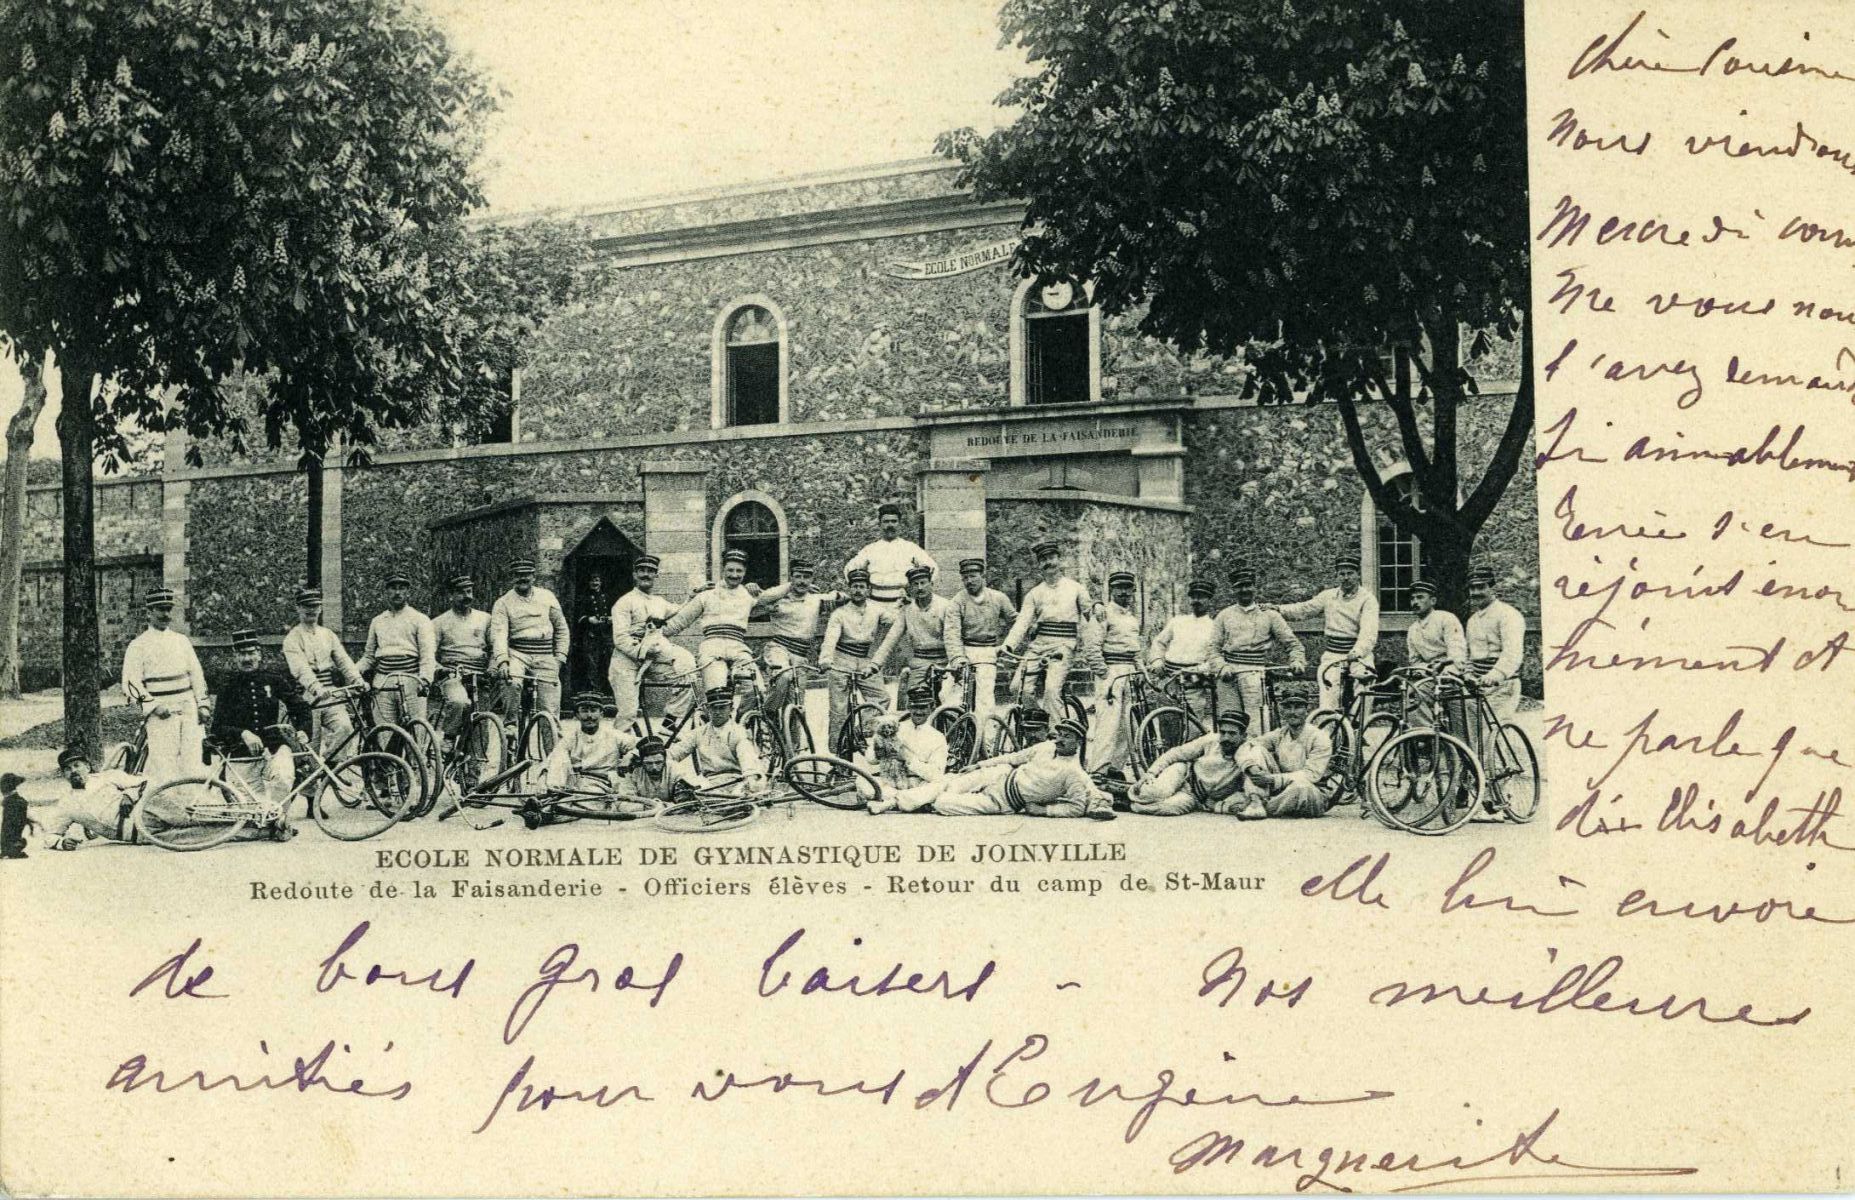 ECOLE NORMALE
REDOUTE DE LA FAISANDERIE
ECOLE NORMALE DE GYMNASTIQUE DE JOINVILLE
Redoute de la Faisanderie - Officiers élèves - Retour du camp de St-Maur
Chère Cousine
Nous viendrons
Mercredi com
me vous nous
l'avez demandé
si aimablement
s'en
réjouit énor
mément et
ne parle que
d'Elisabeth
elle lui envoie
de bons gros baisers - Nos meilleures
amitiés pour vous et Eugène
Marguerite